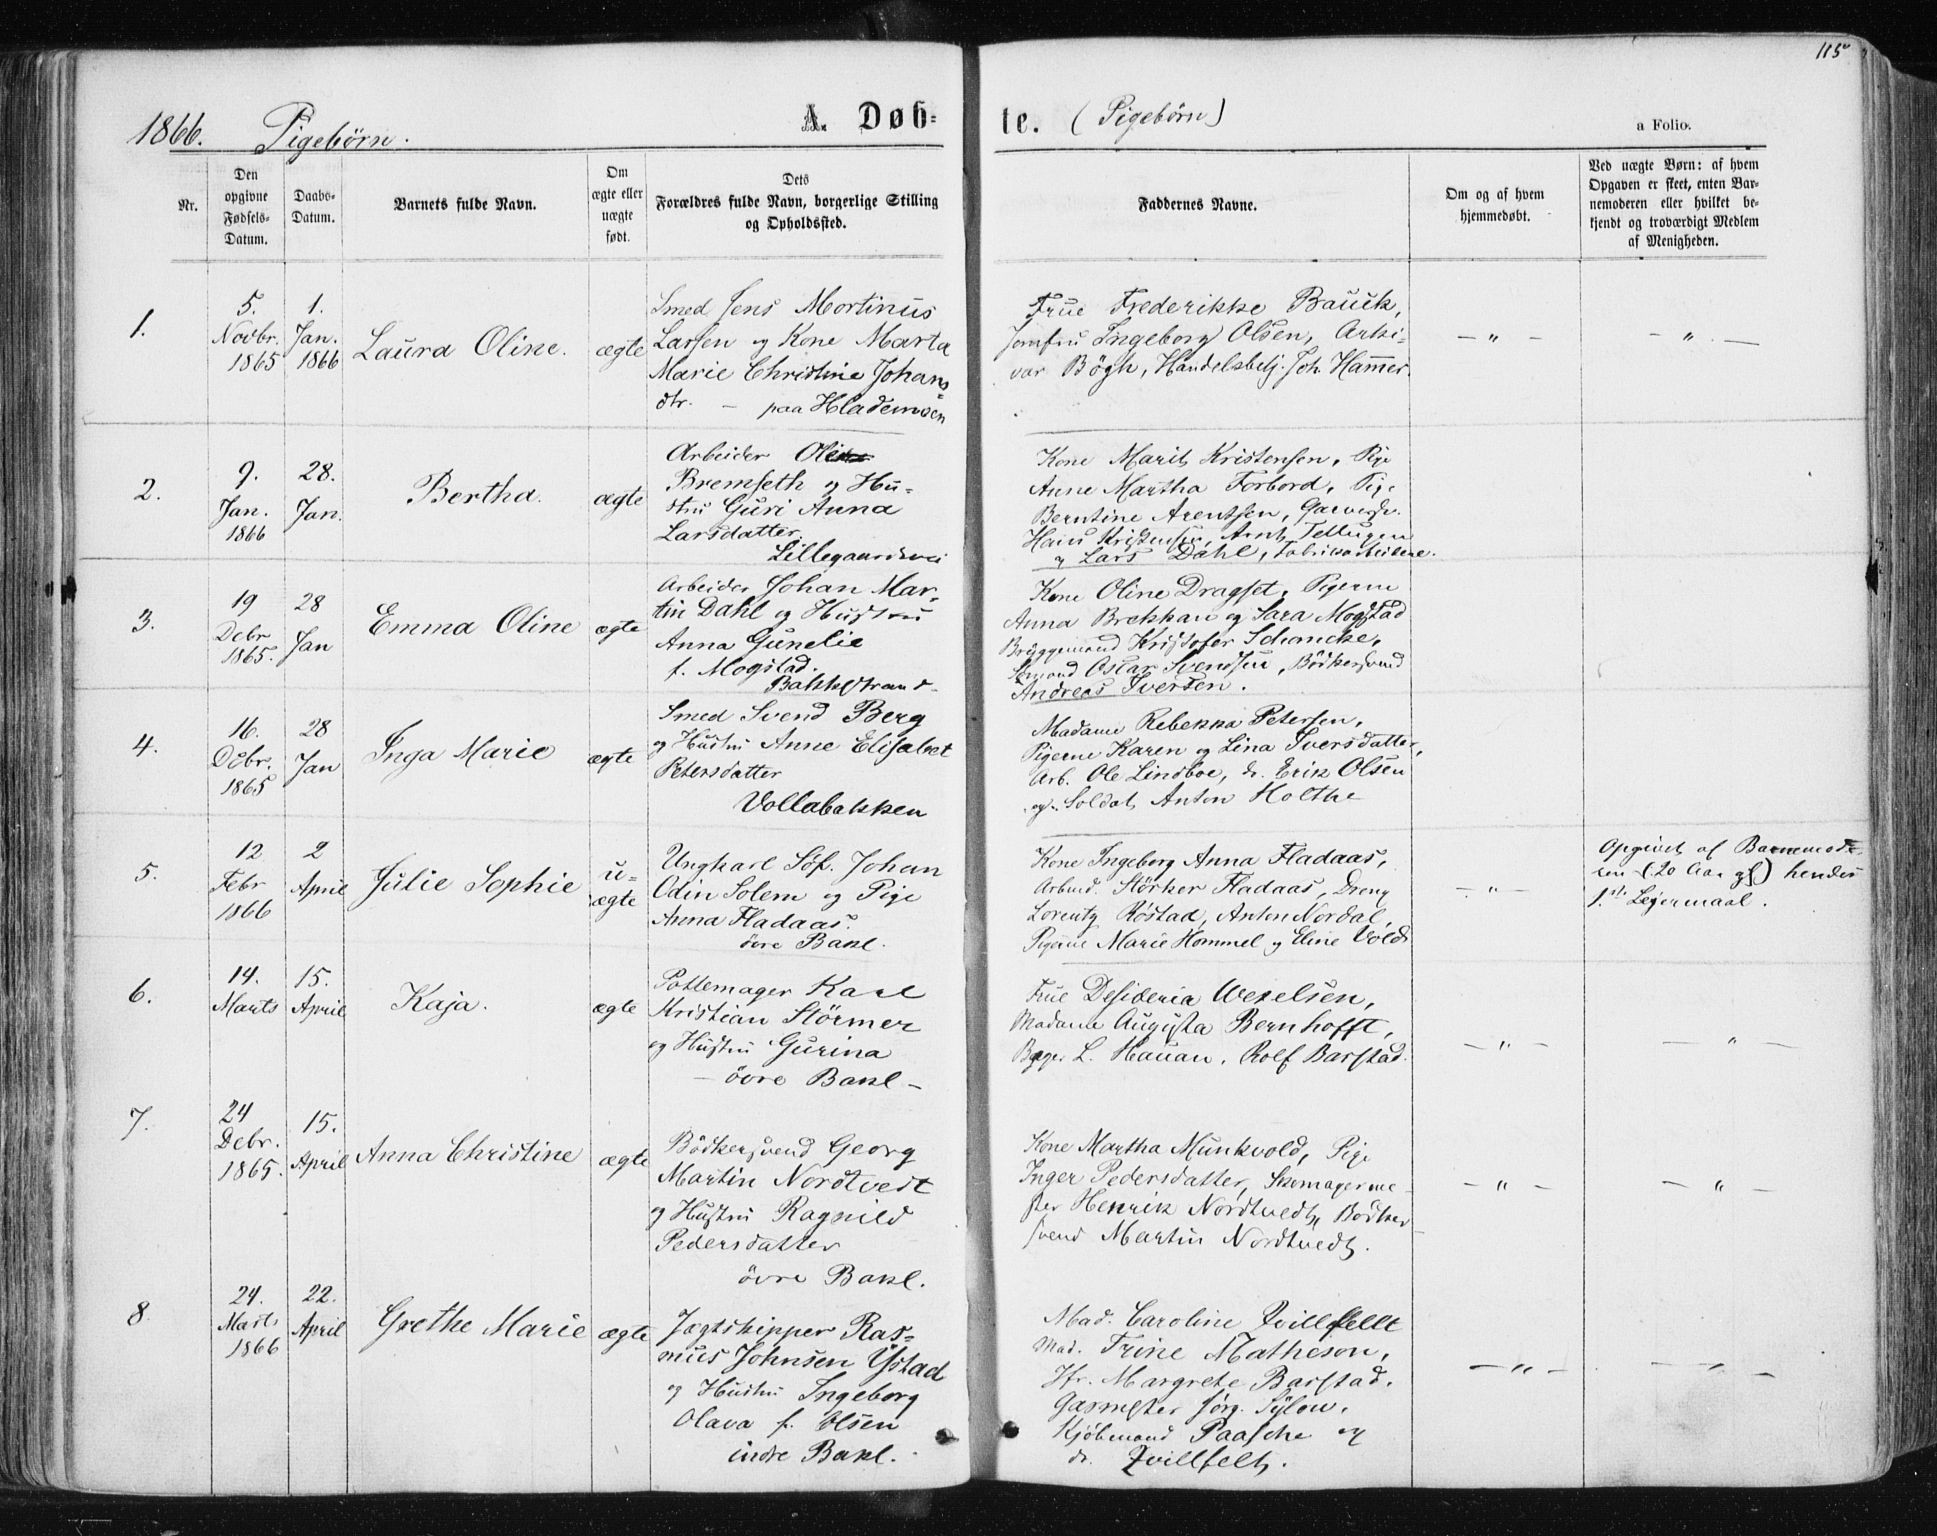 115
1866. Pigebørn. A. Døb-
te. (Pigebørn)
a Folio.
Nr.
Den opgivne Fødsels-Datum.
Daabs-Datum.
Barnets fulde Navn.
Om ægte eller uægte født.
Dets Forældres fulde Navn, borgerlige Stilling og Opholdssted.
Faddernes Navne.
Om og af hvem hjemmedøbt.
Ved uægte Børn: af hvem Opgaven er skeet, enten Barnemoderen eller hvilket bekjendt og troværdigt Medlem af Menigheden.
1.
5. Novbr. 1865
1. Jan. 1866
Laura Oline.
ægte
Smed Jens Mortinus
Larsen og Kone Marta
Marie Christine Johans
dtr. — paa Hlademoen
Frue Frederikke Bauck,
Jomfru Ingeborg Olsen, Arki-
var Bögh, Handelsbetj. Joh. Hammer.
— " —
— " —
2.
9. Jan. 1866
28. Jan.
Bertha.
ægte
Arbeider Ole
Bremseth og Hu-
stru Guri Anna
Larsdatter
Lillegaardsvei
Kone Marit Kristensen, Pige
Anne Martha Forbord, Pige
Berntine Arentsen, Garversv.
Hans Kristensen, Arnt
og Lars Dahl, Fabrikarbeidere.
3.
19 Debr 1865.
28 Jan
Emma Oline
ægte
Arbeider Johan Mar-
tin Dahl og Hustru
Anna Gunelie
f. Mogstad.
Bakkestrand.
Kone Oline Dragset, Pigerne
Anna Brekkan og Sara Mogstad
Bryggemand Kristofer Schancke,
Sömand Oskar Svendsen, Bödkersvend
Andreas Iversen.
4.
16. Debr. 1865
28 Jan
Inga Marie
ægte
Smed Svend Berg
og Hustru Anne Elisabet
Petersdatter
Vollabakken
Madame Rebekka Petersen,
Pigerne Karen og Lina Iversdatter,
Arb. Ole Lindboe, do. Erik Olsen
og Soldat Anton Holthe
5.
12 Febr 1866
2 April
Julie Sophie
u-
ægte
Ungkarl Söf. Johan
Odin Solem og Pige
Anna Fladaas.
övre Bakl.
Kone Ingeborg Anna Fladaas,
Arbmd. Störker Fladaas, Dreng
Lorentz Röstad, Anton Nordal,
Pigerne Marie Hommel og Eline Vold
— " —
Opgivet af Barnemode-
ren (20 Aar gl) hendes
1.ste Leiermaal.
6.
14. Marts
15. April
Kaja.
ægte
Pottemager Karl
Kristian Störmer
og Hustru Gurina
— övre Bakl —
Frue Desideria Wexelsen,
Madame Augusta Bernhofft,
Bager L. Hauan, Rolf Barstad.
— " —
— " —
7.
24 Debr. 1865.
15. April
Anna Christine
ægte
Bödkersvend Georg
Martin Nordtvedt
og Hustru Ragnild
Pedersdatter
övre Bakl.
Kone Martha Munkvold, Pige
Inger Pedersdatter, Skomagerme-
ster Henrik Nordtvedt, Bödker
svend Martin Nordtvedt.
— " —
— " —
8.
24. Marts 1866
22. April
Grethe Marie
ægte
Jægtskipper Ras-
mus Johnsen Ystad
og Hustru Ingeborg
Olava f. Olsen
indre Bakl.
Mad. Caroline Qvillfeldt
Mad. Trine Matheson,
Jfr. Margrete Barstad.
Gasmester Jörg. Sylow.
Kjöbmand Paasche og
do. Qvillfelt.
— " —
— " —